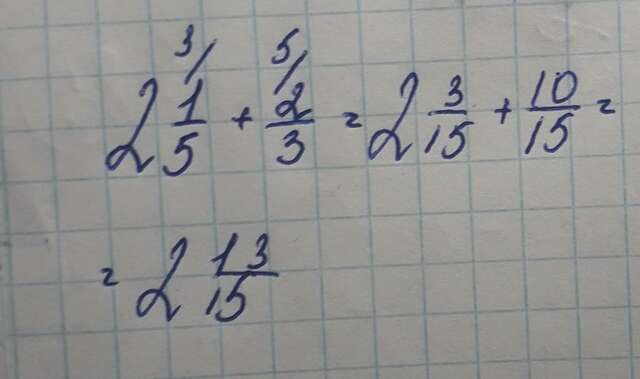 2 3/ 1/5 + 5/ 2/3 = 2 3/15 + 10/15 =
= 2 13/15